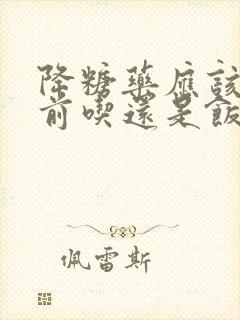 降糖藥應該
前喫還是飯
佩雷斯